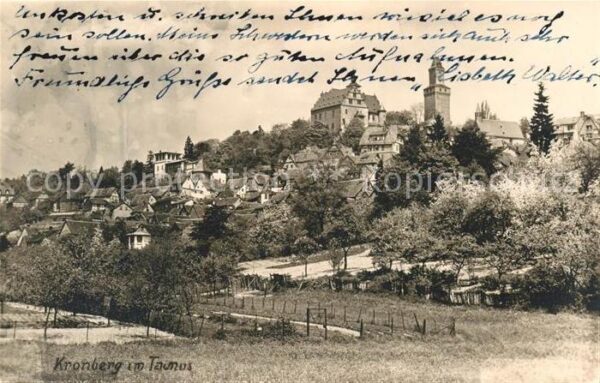 Unkosten u. schreiben Ihnen wieviel es noch
sein sollen. Meine Schwestern werden sich auch sehr
freuen über die so guten Aufnahmen.
Freundliche Grüße sendet Ihnen Lisbeth Walter.
copyright
Kronberg im Taunus